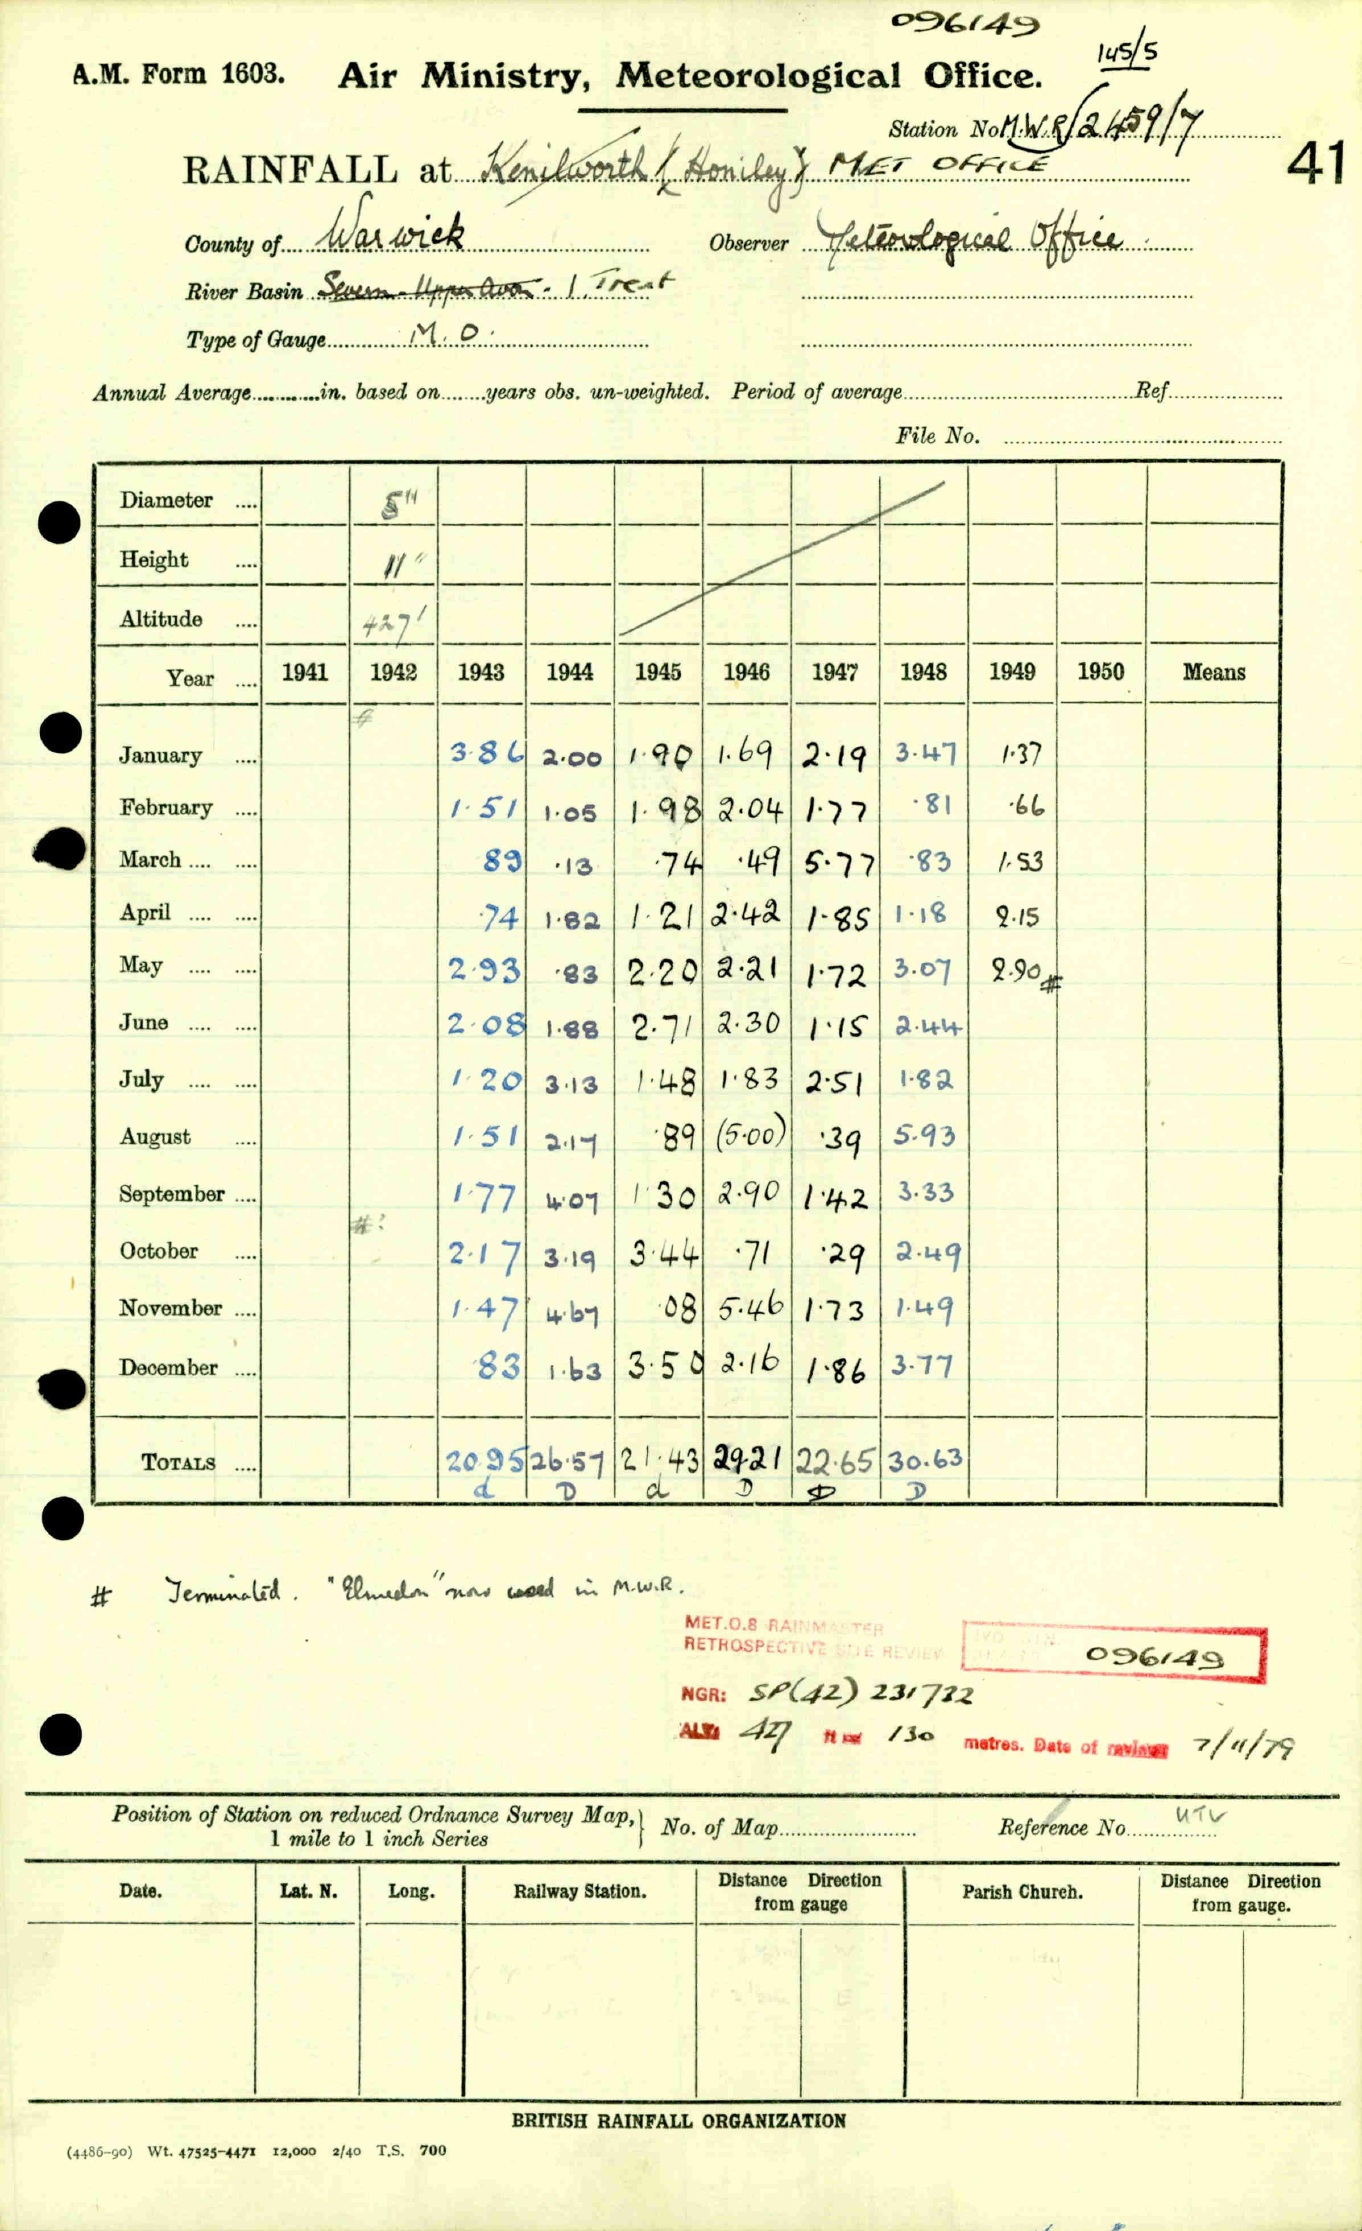 096149
A.M. Form 1603. Air Ministry, Meteorological Office. 145/5
Station No M.W.R/2459/7
41
RAINFALL at Kenilworth (Honiley) MET OFFICE
County of Warwick Observer Meteorological Office
River Basin Severn - Upper Avon - 1. Trent
Type of Gauge M.O.
Annual Average............in. based on........years obs. un-weighted. Period of average........Ref........
File No. ........
Diameter .... 5"
Height .... 11"
Altitude .... 427'
Year .... 1941 1942 1943 1944 1945 1946 1947 1948 1949 1950 Means
#
January .... 3.86 2.00 1.90 1.69 2.19 3.47 1.37
February .... 1.51 1.05 1.98 2.04 1.77 .81 .66
March .... .... 89 .13 .74 .49 5.77 .83 1.53
April .... .... .74 1.82 1.21 2.42 1.85 1.18 2.15
May .... .... 2.93 .83 2.20 2.21 1.72 3.07 2.90 #
June .... .... 2.08 1.88 2.71 2.30 1.15 2.44
July .... .... 1.20 3.13 1.48 1.83 2.51 1.82
August .... 1.51 2.17 .89 (5.00) .39 5.93
September .... 1.77 4.07 1.30 2.90 1.42 3.33
#?
October .... 2.17 3.19 3.44 .71 .29 2.49
November .... 1.47 4.67 .08 5.46 1.73 1.49
December .... .83 1.63 3.50 2.16 1.86 3.77
TOTALS .... 20.95 26.57 21.43 29.21 22.65 30.63
d D d D D D
# Terminated. "Elmedon" now used in M.W.R.
MET.O.8 RAINMASTER
RETROSPECTIVE SITE REVIEW 096149
NGR: SP(42) 231722
ALT: 427 ft 130 metres. Date of review 7/11/79
Position of Station on reduced Ordnance Survey Map, } No. of Map........ Reference No........
1 mile to 1 inch Series
Date. Lat. N. Long. Railway Station. Distance Direction from gauge Parish Church. Distance Direction from gauge.
BRITISH RAINFALL ORGANIZATION
(4486-90) Wt. 47525-4471 12,000 2/40 T.S. 700